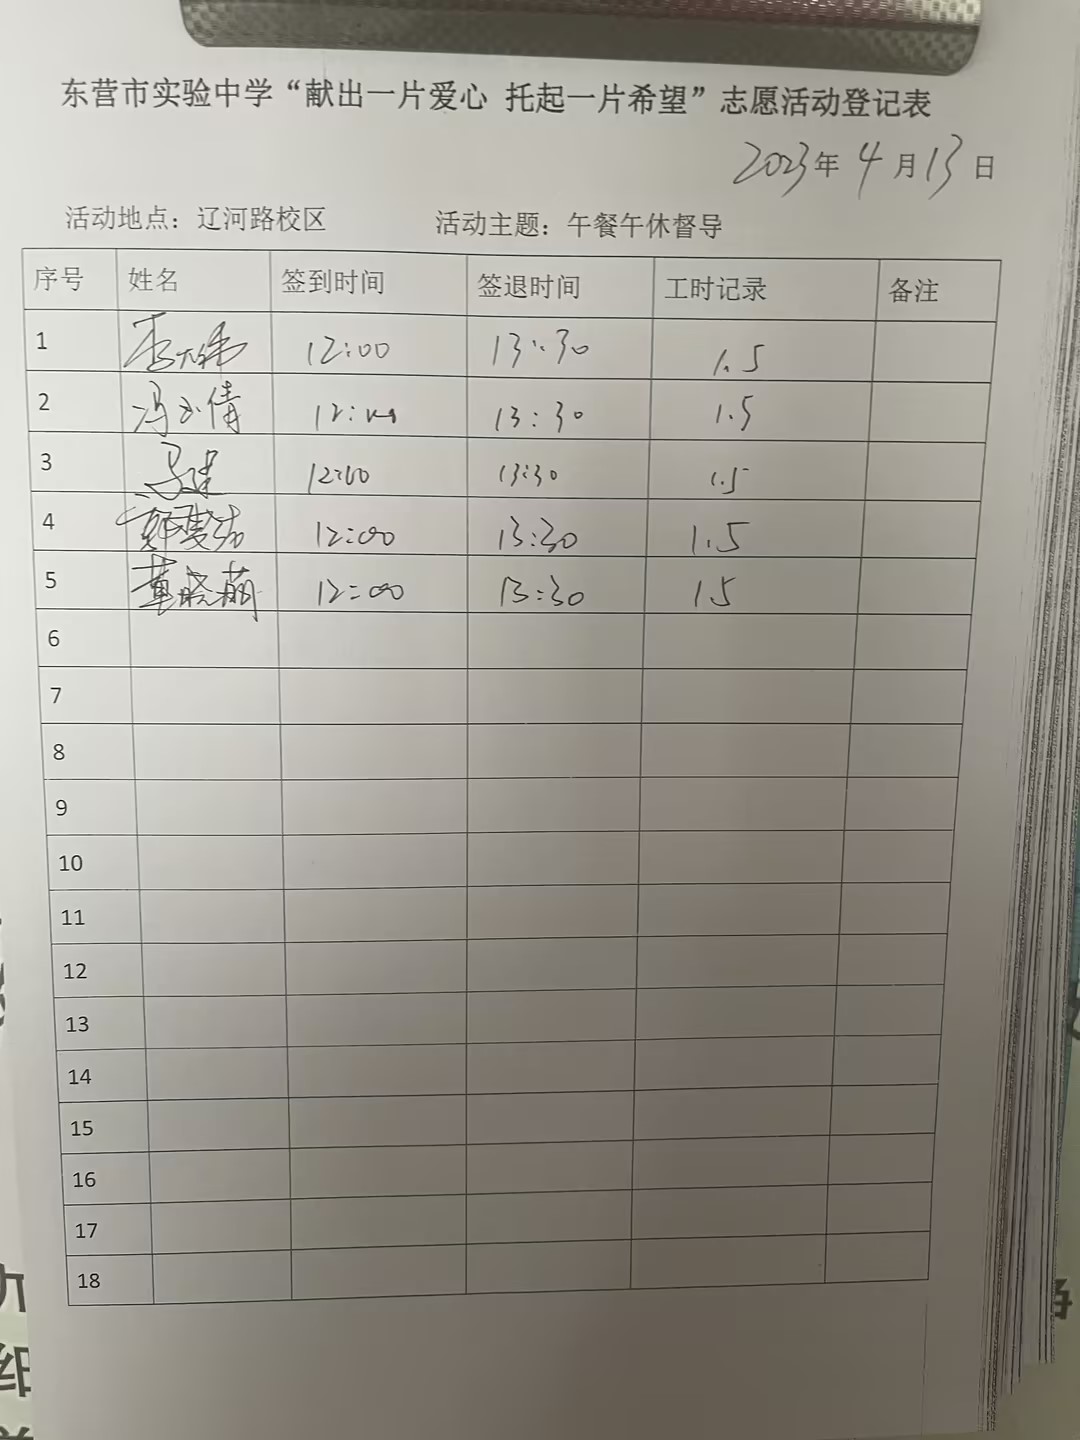 东营市实验中学“献出一片爱心 托起一片希望”志愿活动登记表
2023年4月13日
活动地点：辽河路校区 活动主题：午餐午休督导
序号 姓名 签到时间 签退时间 工时记录 备注
1 12:00 13:30 1.5
2 冯玉倩 12:00 13:30 1.5
3 12:00 13:30 1.5
4 12:00 13:30 1.5
5 董晓萌 12:00 13:30 1.5
6
7
8
9
10
11
12
13
14
15
16
17
18